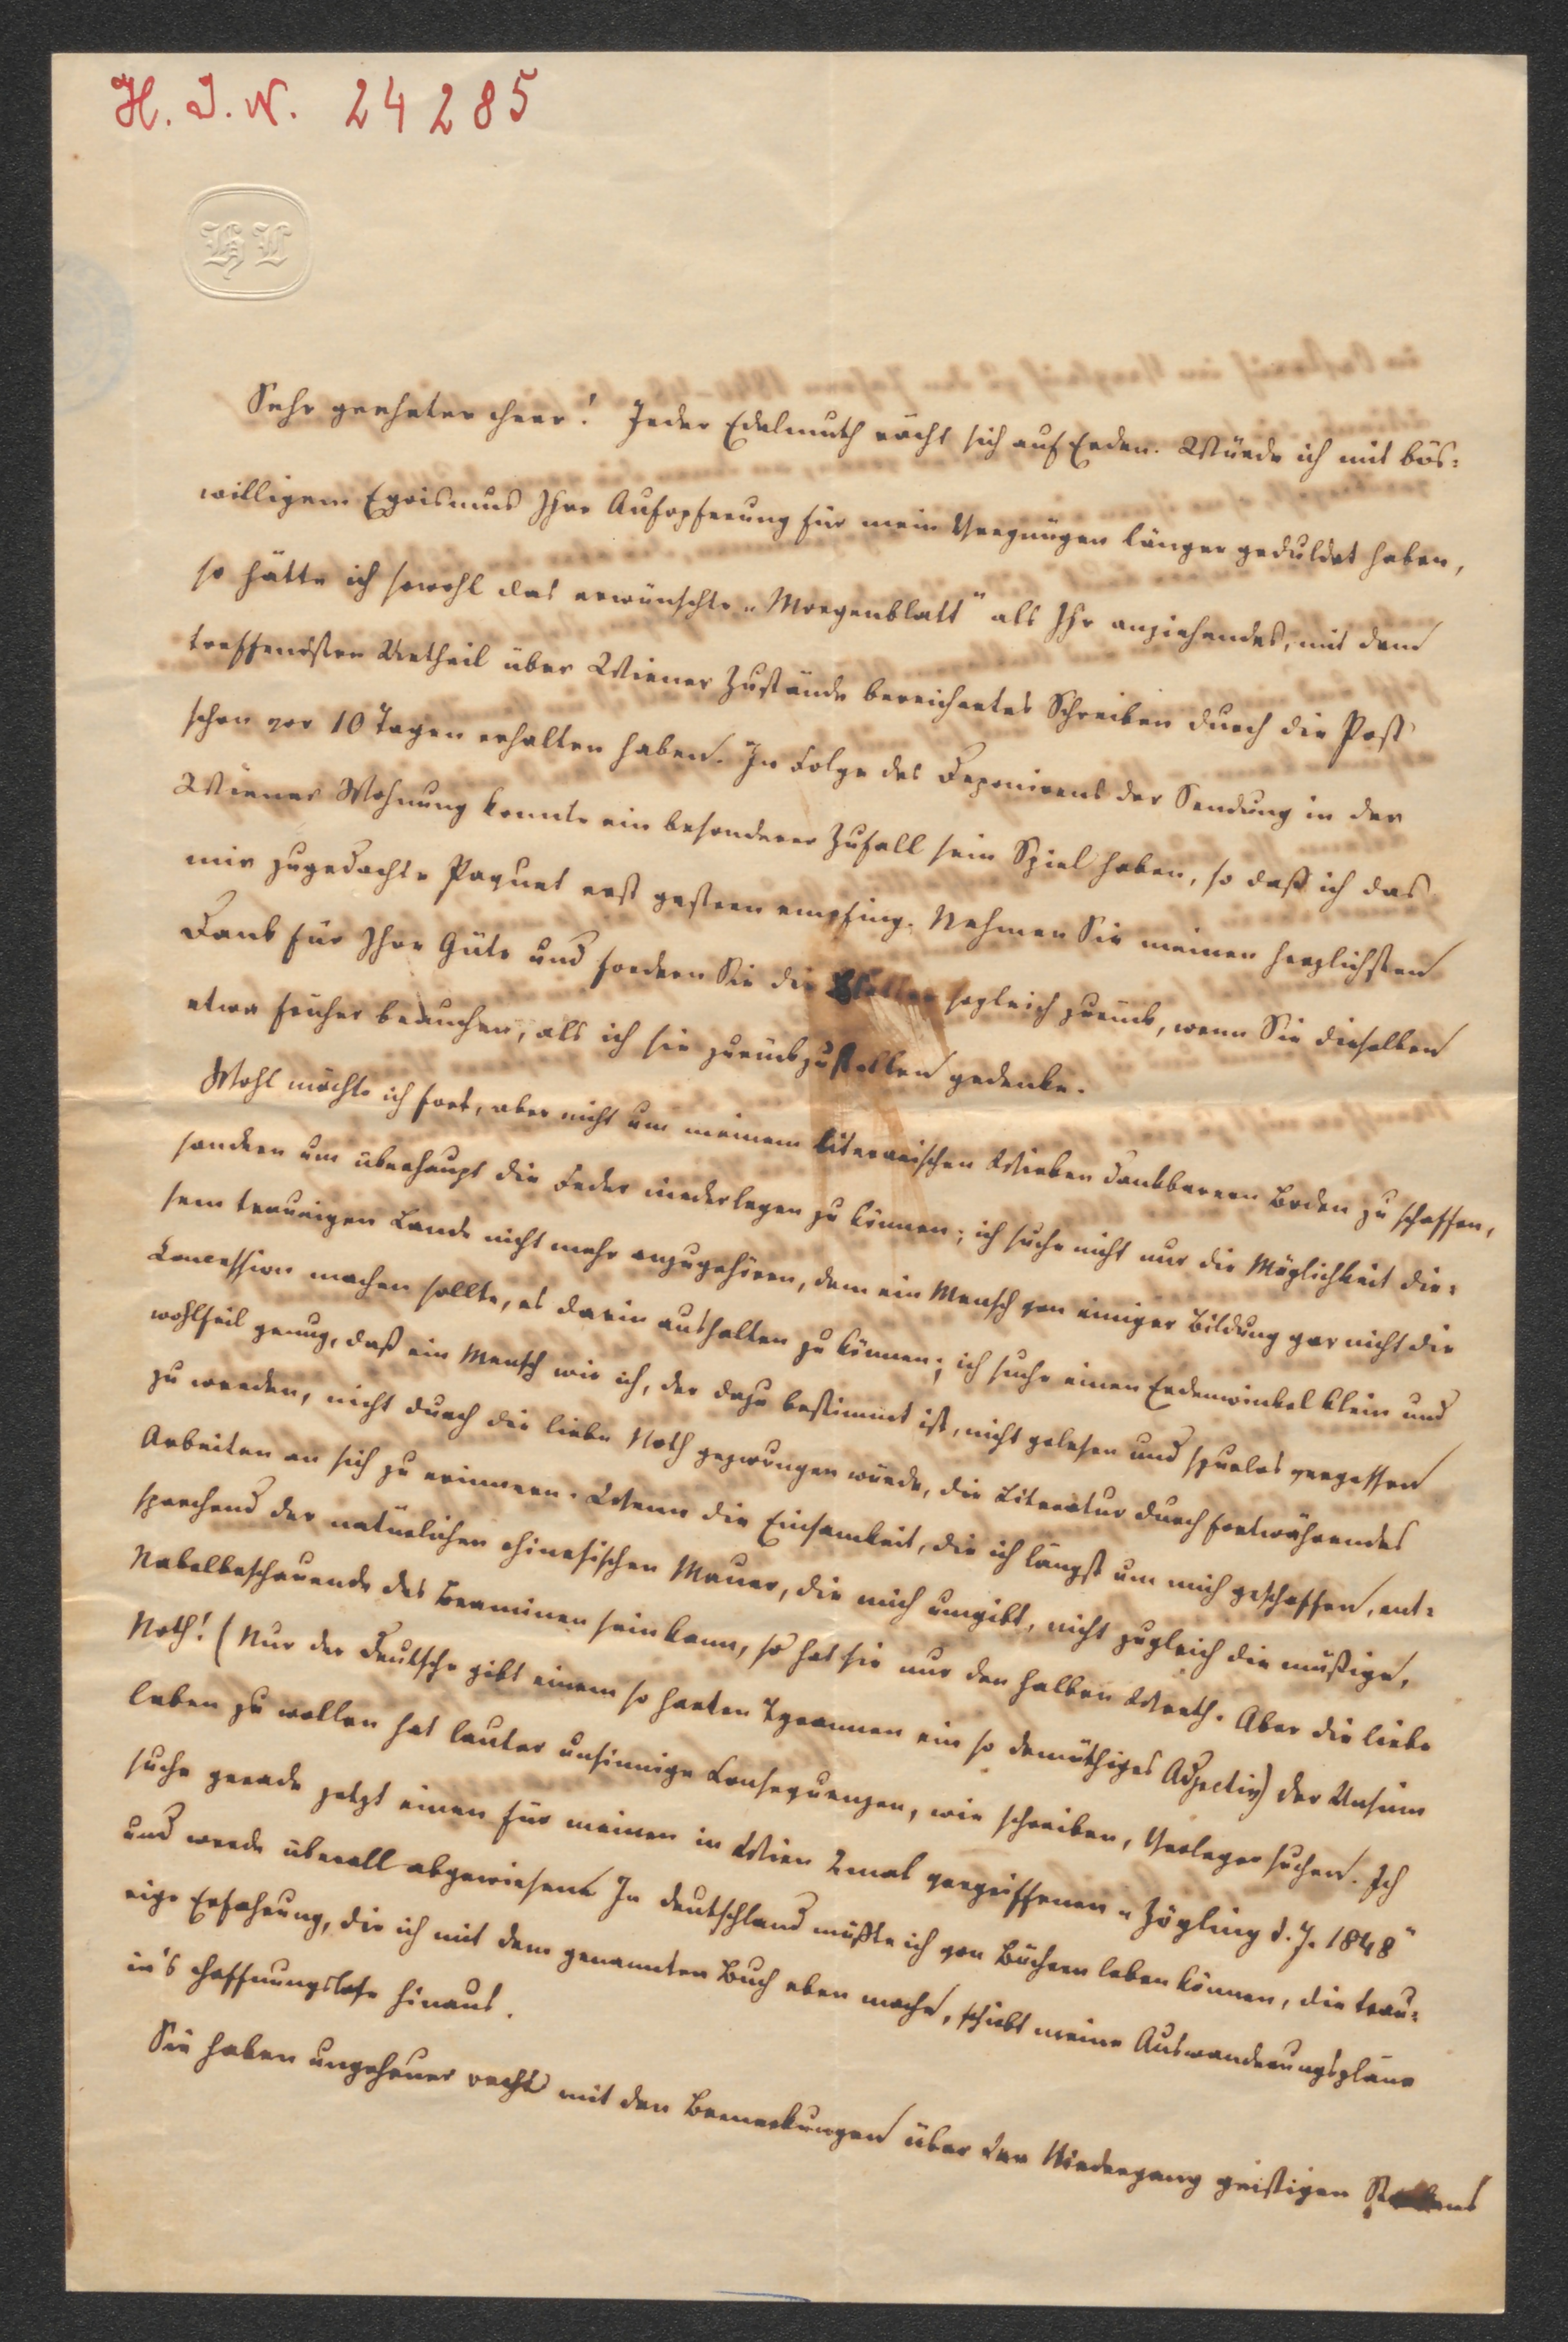 H. I. N. 24285
HL
Sehr geehrter Herr! Jeder Edelmuth rächt sich auf Erden. Würde ich mit bös=
willigem Egoismus Ihre Aufopferung für mein Vergnügen länger geduldet haben,
so hätte ich sowohl das erwünschte „Morgenblatt" als Ihr anziehendes, mit dem
treffendsten Urtheil über Wiener Zustände bereichertes Schreiben durch die Post
schon vor 10 Tagen erhalten haben. In Folge des Deponirens der Sendung in der
Wiener Wohnung konnte ein besonderer Zufall sein Spiel haben, so daß ich das
mir zugedachte Paquet erst gestern empfing. Nehmen Sie meinen herzlichsten
Dank für Ihre Güte und fordern Sie die Blätter sogleich zurück, wenn Sie dieselben
etwa früher brauchen, als ich sie zurückzustellen gedenke.
Wohl möchte ich fort, aber nicht um meinem literarischen Wirken dankbareren Boden zu schaffen,
sondern um überhaupt die Feder niederlegen zu können; ich suche nicht nur die Möglichkeit die=
sem traurigen Lande nicht mehr anzugehören, dem ein Mensch von einiger Bildung gar nicht die
Concession machen sollte, es darin aushalten zu können; ich suche einen Erdenwinkel klein und
wohlfeil genug, daß ein Mensch wie ich, der dazu bestimmt ist, nicht gelesen und spurlos vergessen
zu werden, nicht durch die liebe Noth gezwungen würde, die Literatur durch fortwährendes
Arbeiten an sich zu erinnern. Wenn die Einsamkeit, die ich längst um mich geschaffen, ent=
sprechend der natürlichen chinesischen Mauer, die mich umgibt, nicht zugleich die müßige,
Nabelbeschauende des Braminen sein kann, so hat sie nur den halben Werth. Aber die liebe
Noth! (Nur der Deutsche gibt einem so harten Tyrannen ein so demüthiges Adjectiv) der Unsinn
leben zu wollen hat lauter unsinnige Consequenzen, wie schreiben, Verleger suchen. Ich
suche gerade jetzt einen für meinen in Wien 2mal vergriffenen „Zögling d. J. 1848"
und werde überall abgewiesen. In Deutschland müßte ich von Büchern leben können, die trau=
rige Erfahrung, die ich mit dem genannten Buch eben mache, schiebt meine Auswanderungspläne
in's Hoffnungslose hinaus.
Sie haben ungeheuer recht mit den Bemerkungen über den Niedergang geistigen Strebens